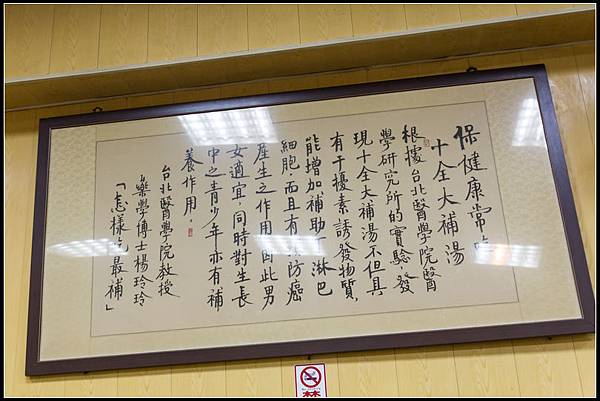 保健康常
十全大補湯
根據台北醫學院醫
學研究所的實驗,發
現十全大補湯不但具
有干擾素誘發物質,
能增加補助T淋巴
細胞而且有預防癌
產生之作用因此男
女適宜,同時對生長
中之青少年亦有補
養作用。
台北醫學院教授
藥學博士楊玲玲
「怎樣吃最補」
禁